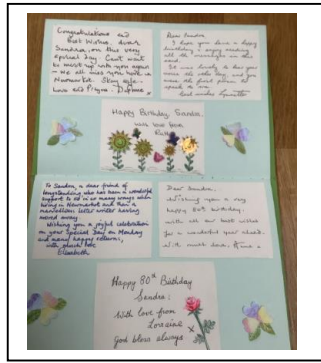 Congratulations and
Best Wishes, dear
Sandra, on this very
special Day. Can't wait
to meet up with you again
- We all miss you here in
Newmarket. Stay safe -
Love and Prayers. Daphne x
Dear Sandra,
I hope you have a happy
birthday & enjoy reading
all the messages in this
card.
It was lovely to hear you
were the first person to
speak to me.
Best wishes
Happy Birthday, Sandra.
with love from
Ruth
To Sandra, a dear friend of
longstanding who has been a wonderful
support to us in so many ways when
living in Newmarket and then a
marvellous letter writer having
moved away
Wishing you a joyful celebration
on your Special Day on Monday
and many happy returns,
with much love
Elizabeth
Dear Sandra,
Wishing you a very
happy 80th birthday.
with all our best wishes
for a wonderful year ahead.
with much love,
Happy 80th Birthday
Sandra:
With love from
Loraine
x
God bless always